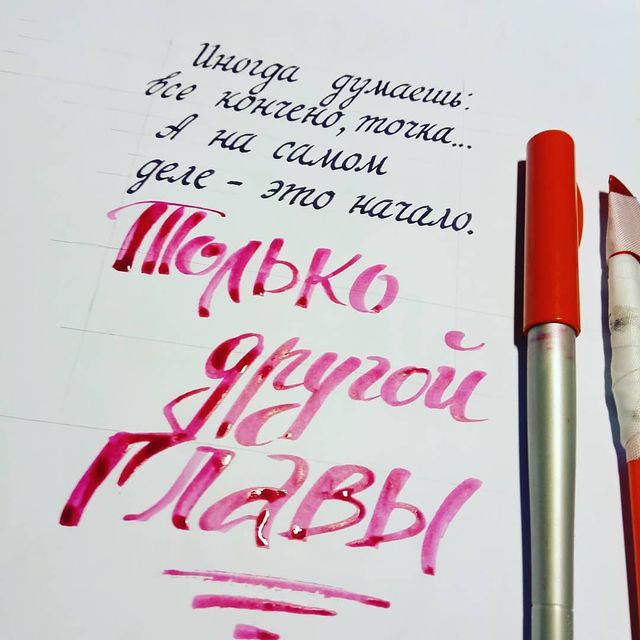 Иногда думаешь:
все кончено, точка...
А на самом
деле - это начало.
Только
другой
главы